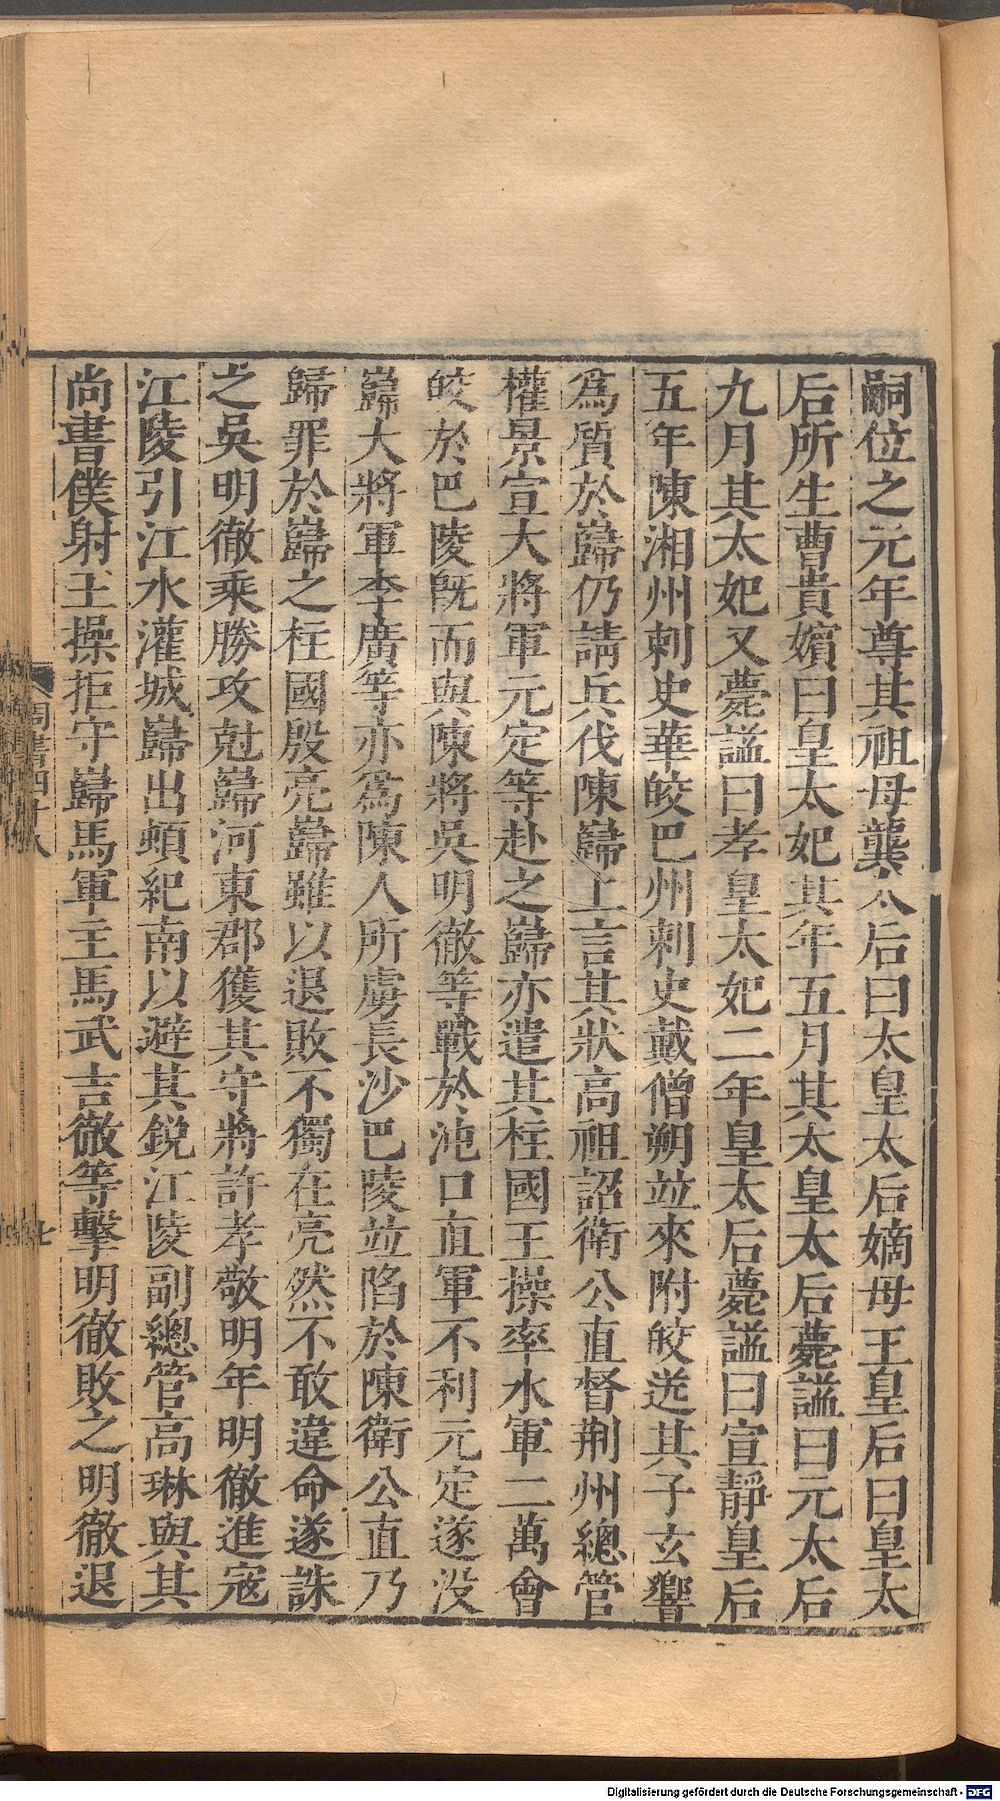 嗣位之元年尊其祖母龔太后曰太皇太后嫡母王皇后曰皇太
后所生曹貴嬪曰皇太妃其年五月其太皇太后薨謚曰元太后
九月其太妃又薨謚曰孝皇太妃二年皇太后薨謚曰宣靜皇后
五年陳湘州刺史華皎巴州刺史戴僧朔並來附皎送其子玄響
爲質於巋仍請兵伐陳巋上言其狀高祖詔衛公直督荆州總管
權景宣大將軍元定等赴之巋亦遣其柱國王操率水軍二萬會
皎於巴陵旣而與陳將吳明徹等戰於沌口直軍不利元定遂没
巋大將軍李廣等亦爲陳人所虜長沙巴陵並陷於陳衛公直乃
歸罪於巋之柱國殷亮巋雖以退敗不獨在亮然不敢違命遂誅
之吳明徹乘勝攻尅巋河東郡獲其守將許孝敬明年明徹進宼
江陵引江水灌城巋出頓紀南以避其鋭江陵副總管高琳與其
尚書僕射王操拒守巋馬軍主馬武吉徹等擊明徹敗之明徹退
周書四十八
七
Digitalisierung gefördert durch die Deutsche Forschungsgemeinschaft - DFG